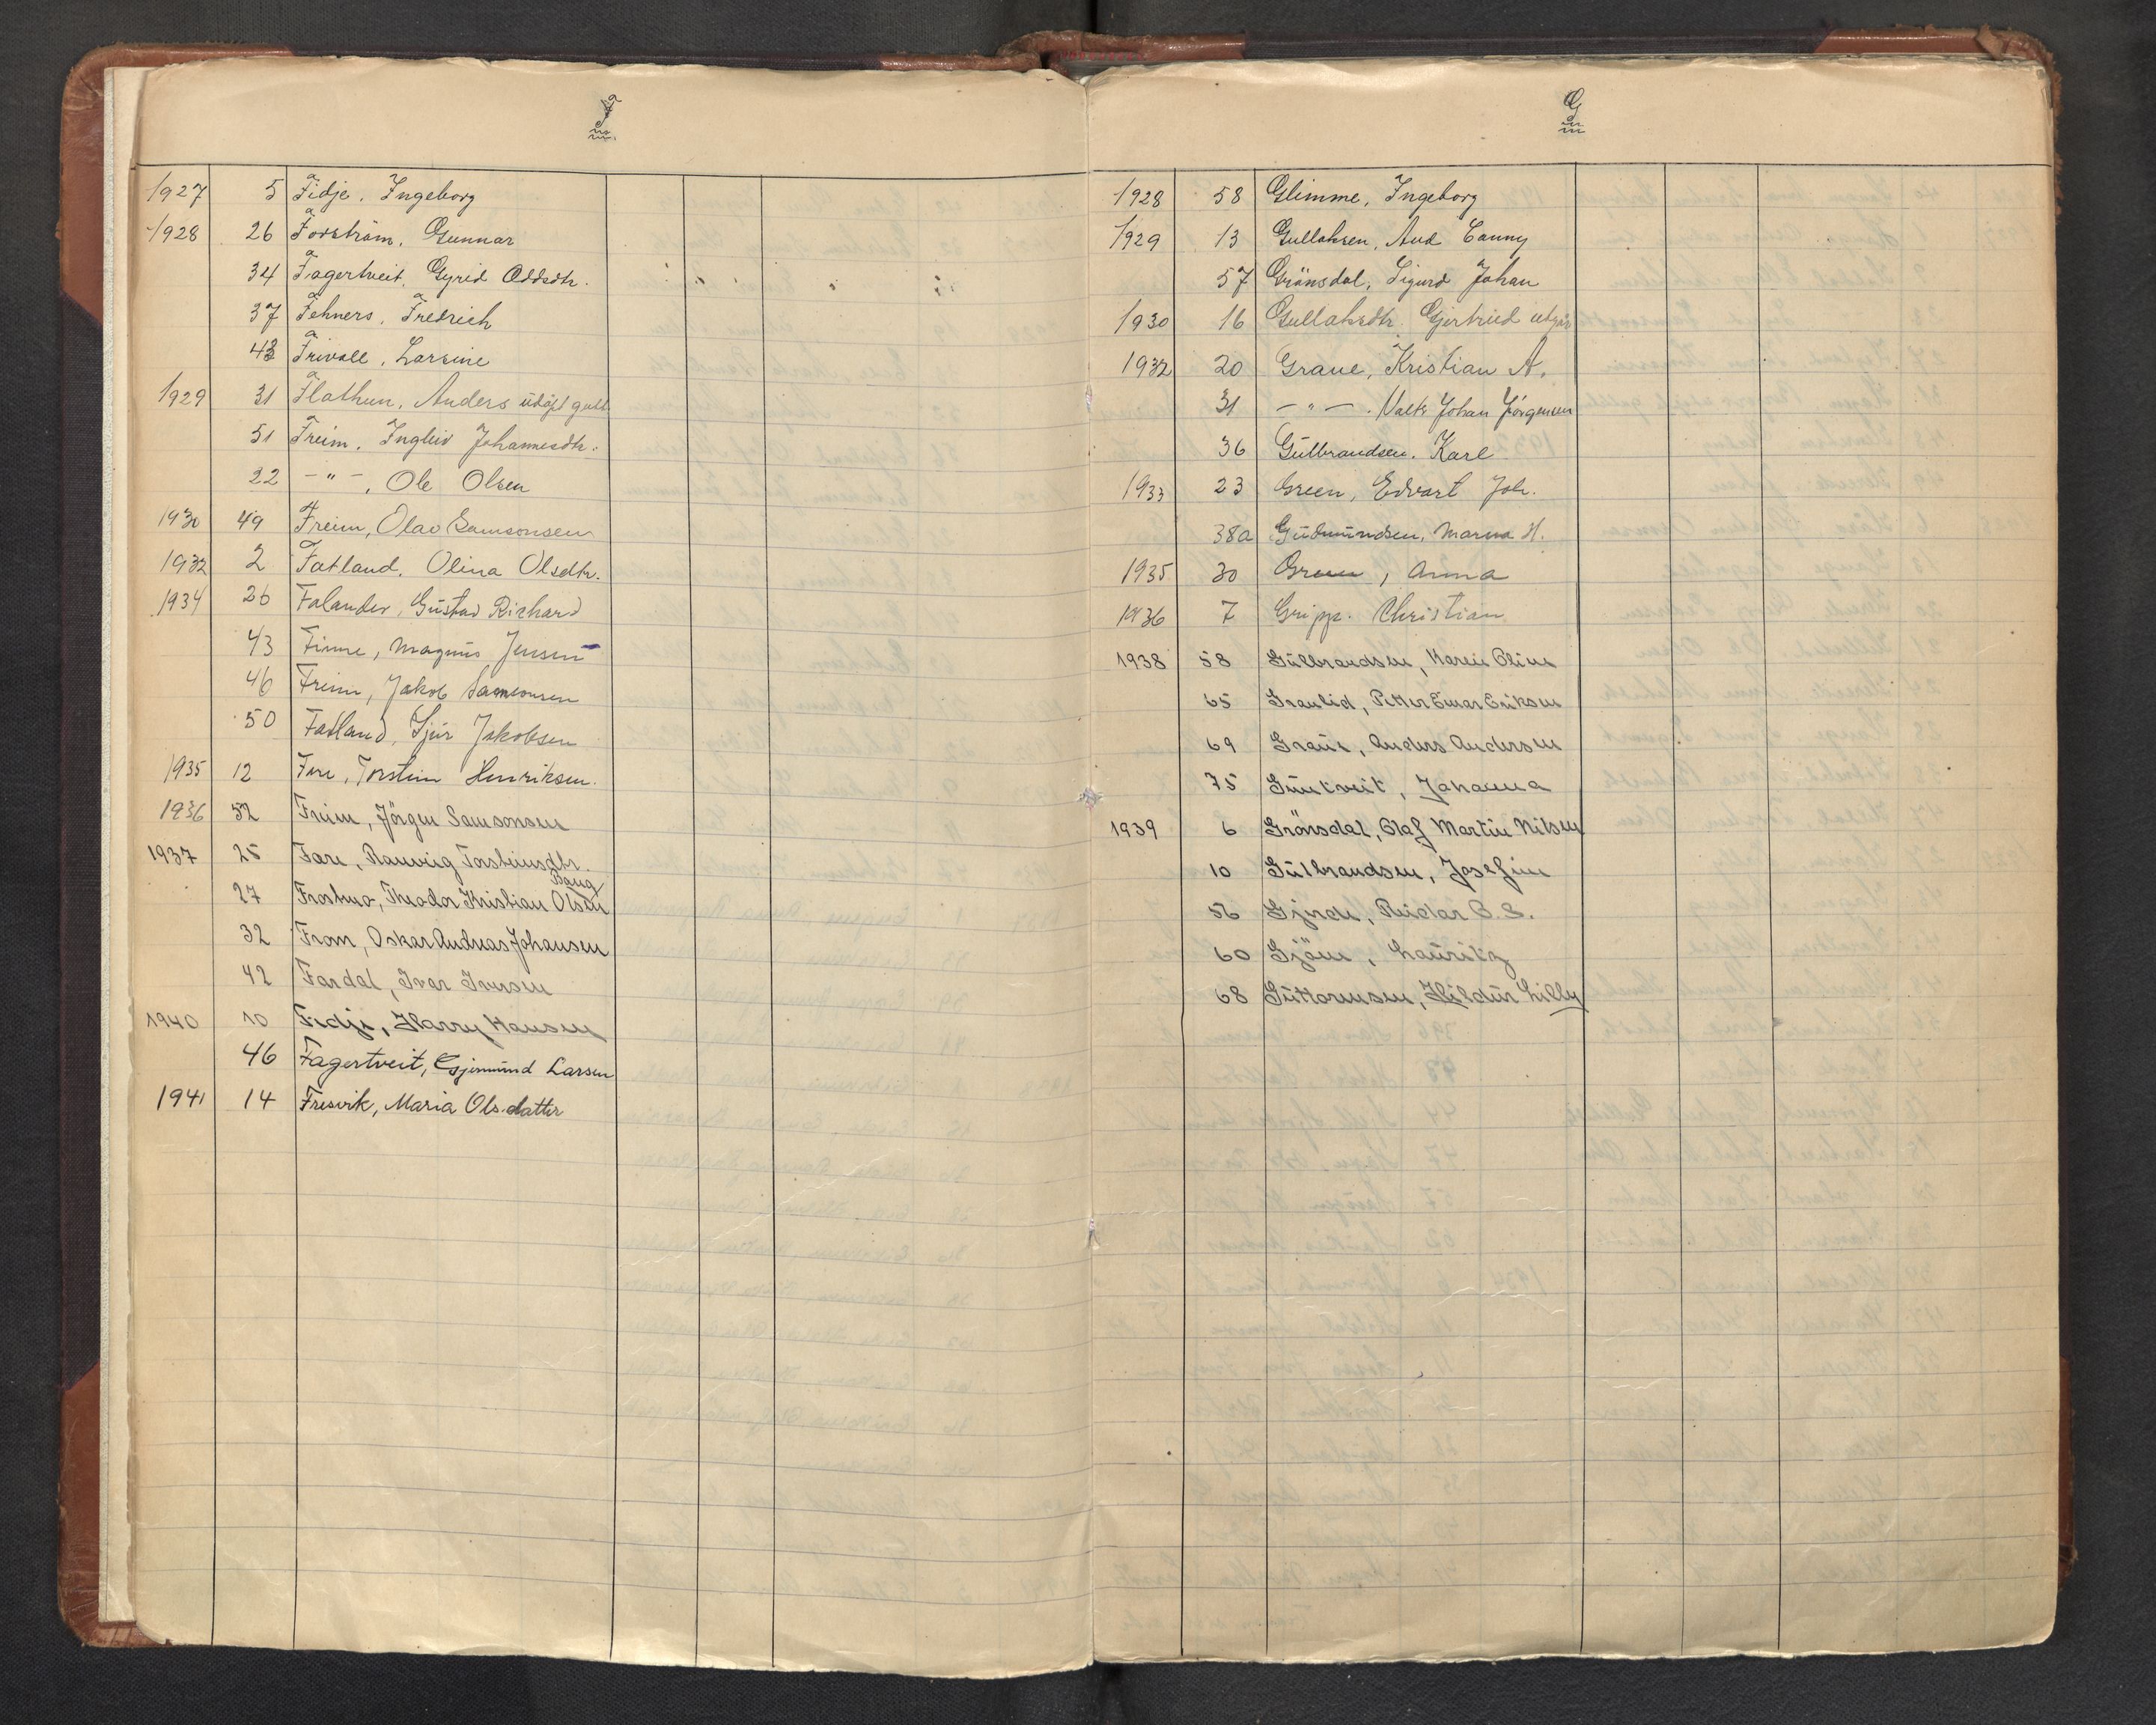 F
1927 5 Fidje, Ingeborg
1928 26 Forström, Gunnar
34 Fagertveit, Gyrid Oddsdtr.
37 Fehners, Fredrich
43 Frivoll, Larsine
1929 31 Flathun, Anders udöpt gutt
51 Freim, Ingleiv Johannesdtr.
22 -"-, Ole Olsen
1930 49 Freim, Olav Samsonsen
1932 2 Fatland, Olina Olsdtr.
1934 26 Falander, Gustav Richard
43 Finne, Magnus Jensen
46 Freim, Jakob Samsonsen
50 Fatland, Sjur Jakobsen
1935 12 Fare, Torstein Henriksen.
1936 52 Freim, Jörgen Samsonsen
1937 25 Fare, Rannveig Torsteinsdtr.
27 Frostmo, Theodor Kristian Bang Olsen
32 From, Oskar Andreas Johansen
42 Fardal, Ivar Iversen
1940 10 Fedje, Harry Hansen
46 Fagertveit, Gjermund Larsen
1941 14 Fresvik, Maria Olsdatter
G
1928 58 Glimme, Ingeborg
1929 13 Gullaksen, Aud Conny
57 Grönsdal, Sigurd Johan
1930 16 Gullaksdtr. Gjertrud
1932 20 Graue, Kristian A.
31 -"-. Johan Jörgensen
36 Gulbrandsen, Karl
1933 23 Green, Edvart Joh.
38a Gudmundsen, Marna H.
1935 30 Green, Anna
1936 7 Gripp. Christian
1938 58 Gulbrandsen, Karen Oline
65 Granlid, Petter Einar Eriksen
69 Graue, Anders Andersen
75 Guntveit, Johanna
1939 6 Grönsdal, Olaf Martin Nilsen
10 Gulbrandsen, Josefine
56 Gjerde, Reidar
60 Gjöen, Lauritz
68 Guttormsen, Hildur Lilly